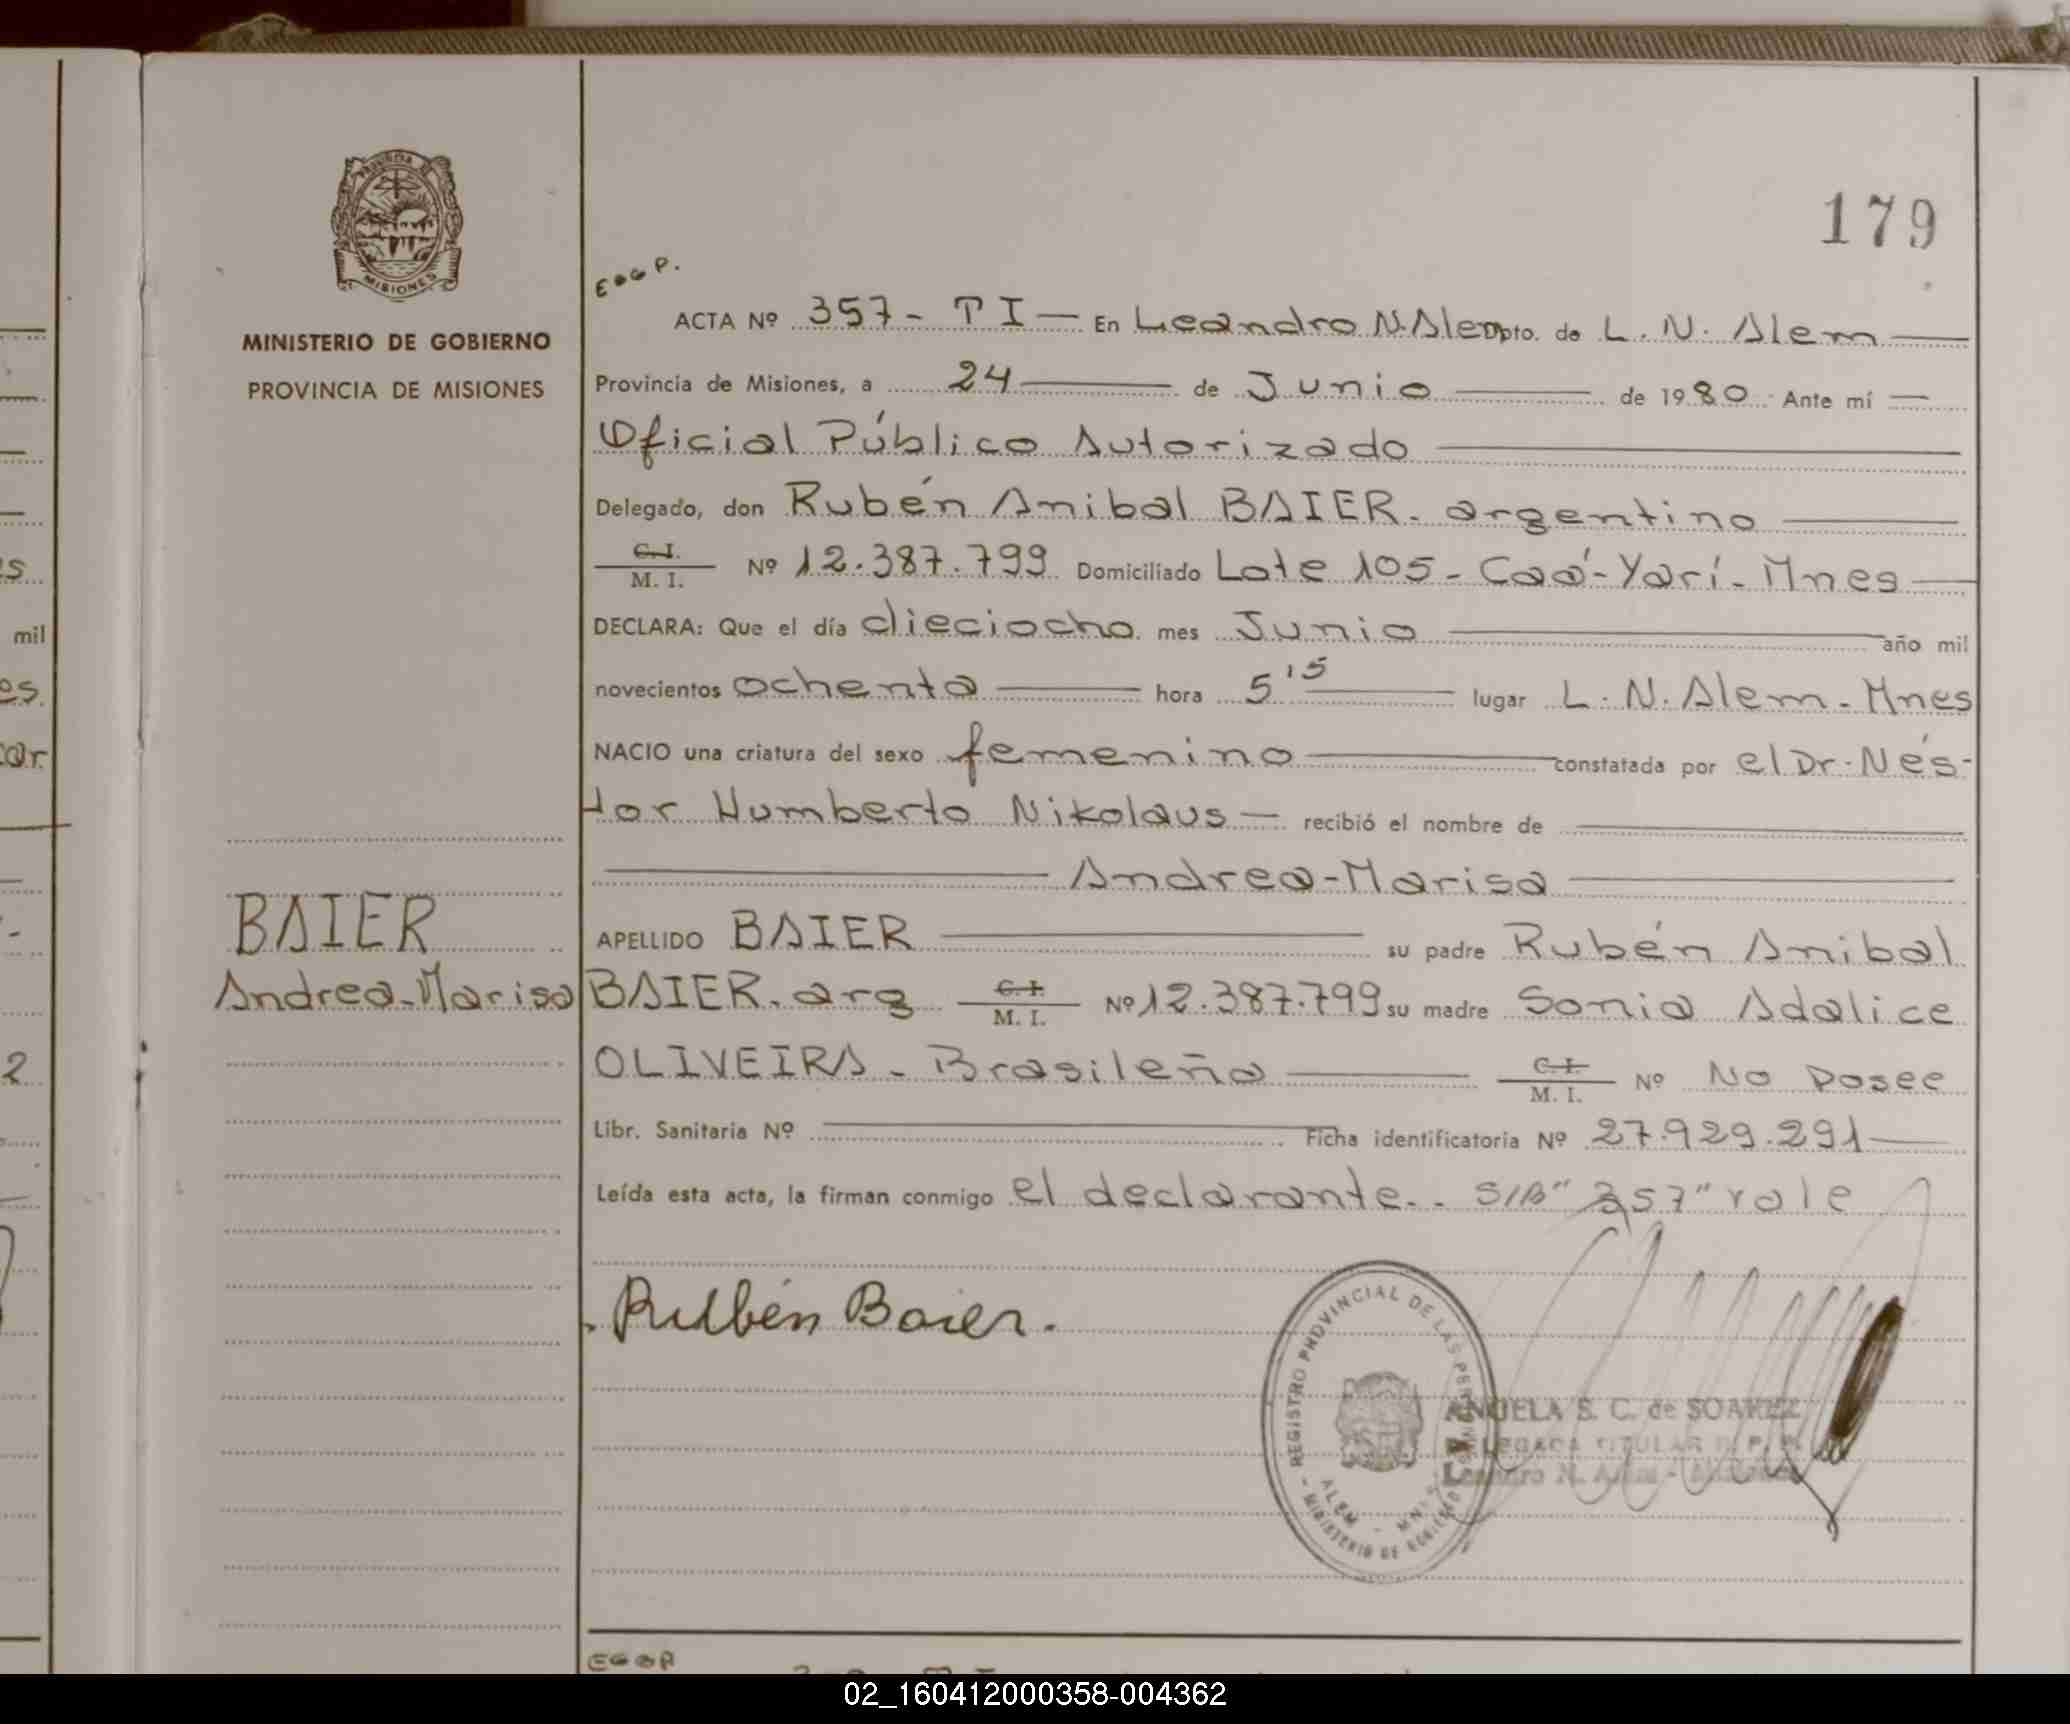 179
MINISTERIO DE GOBIERNO
PROVINCIA DE MISIONES
ACTA Nº 357 - T I — En Leandro N. Alem Dpto. de L. N. Alem —
Provincia de Misiones, a 24 — de Junio — de 1980. Ante mí —
Oficial Público Autorizado —
Delegado, don Rubén Anibal BAIER. argentino —
C. I. / M. I. Nº 12.387.799 Domiciliado Lote 105 - Caá-Yarí - Mnes —
DECLARA: Que el día dieciocho mes Junio — año mil
novecientos ochenta — hora 5,15 — lugar L. N. Alem - Mnes
NACIO una criatura del sexo femenino — constatada por el Dr. Nés-
tor Humberto Nikolaus — recibió el nombre de —
— Andrea-Marisa —
BAIER
Andrea-Marisa
APELLIDO BAIER — su padre Rubén Anibal
BAIER. arg C. I. / M. I. Nº 12.387.799 su madre Sonia Adalice
OLIVEIRA - Brasileña — C. I. / M. I. Nº No Posee
Libr. Sanitaria Nº — Ficha identificatoria Nº 27.929.291 —
Leída esta acta, la firman conmigo el declarante. - S/B "357" vale
Rubén Baier.
REGISTRO PROVINCIAL DE LAS PERSONAS
ALEM - MNES
MINISTERIO DE GOBIERNO
ANGELA S. C. de SOAREZ
DELEGADA TITULAR R. P. P.
Leandro N. Alem - Misiones
02_160412000358-004362